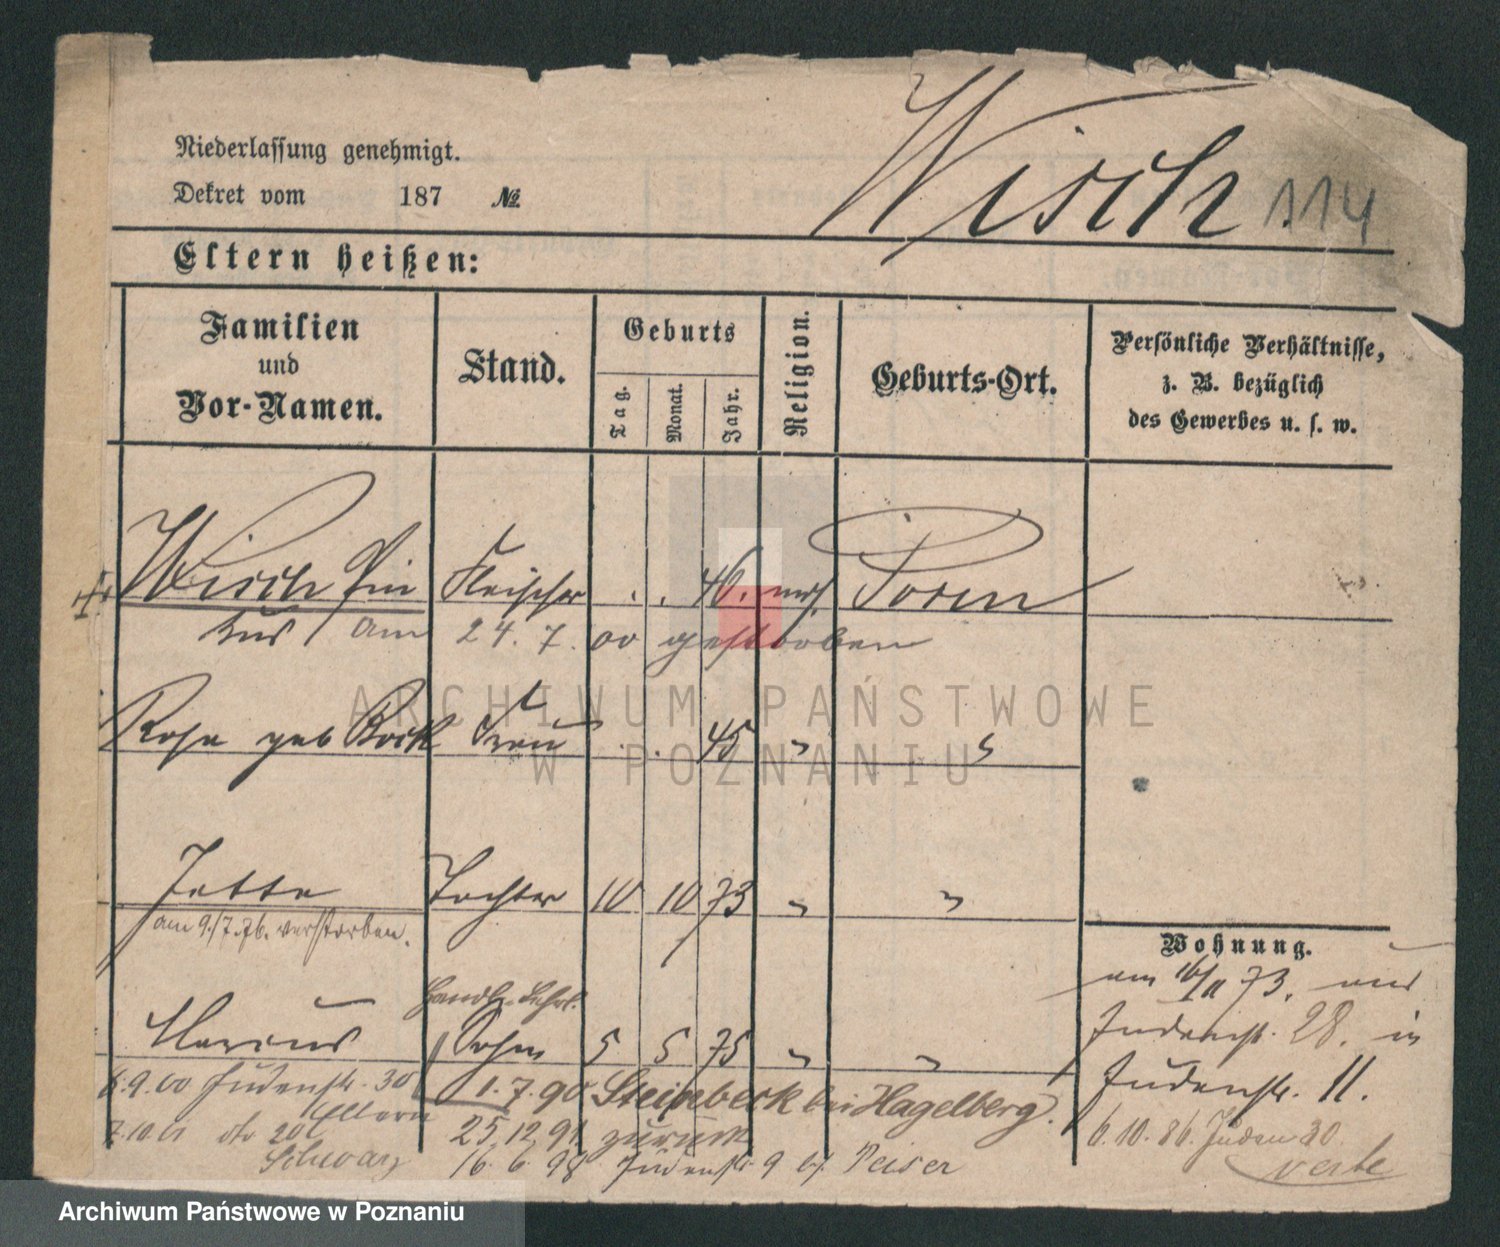 Niederlassung genehmigt.
Dekret vom 187 №
Wisch 114
Eltern heißen:
Familien
und
Vor-Namen.
Stand.
Geburts
Tag.
Monat.
Jahr.
Religion.
Geburts-Ort.
Persönliche Verhältnisse,
z. B. bezüglich
des Gewerbes u. s. w.
Wisch Pin Fleischer 46. mos. Posen
kus am 24. 7. 00 gestorben
Rosa geb Bock Frau 45 " "
Jette Tochter 10 10 73 " "
am 9./7.76. verstorben.
Handl. Lehrl.
Marcus Sohn 5 5 75 " "
Wohnung.
am 16/11 73. aus
Judenstr. 28. in
Judenstr. 11.
6.10.86. Juden 30
6.9.00 Judenstr. 30 1.7.90 Steinbeck bei Hagelberg.
Eltern
7.10.01 20 25.12.91 zurück
Schwarz 16.6.98 Judenstr 9 bei Peiser
ARCHIWUM PAŃSTWOWE
W POZNANIU
Archiwum Państwowe w Poznaniu